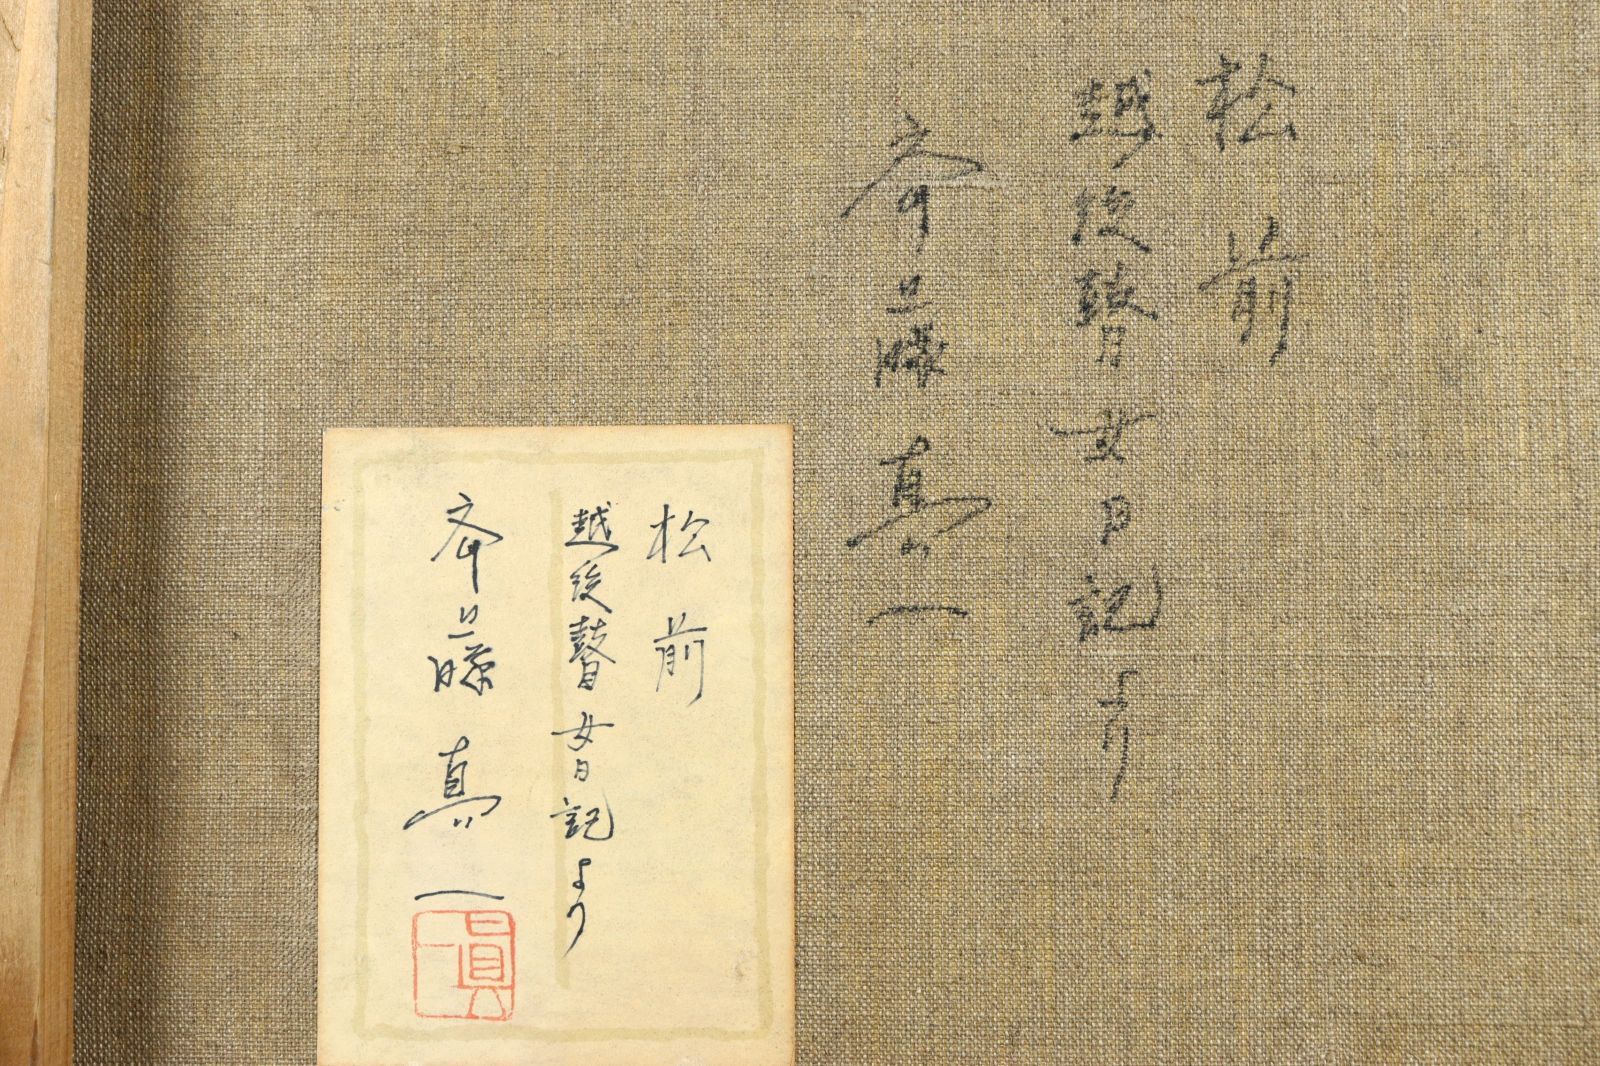 松前
越後瞽女日記より
斎藤真一
松前
越後瞽女日記より
斎藤真一
眞一